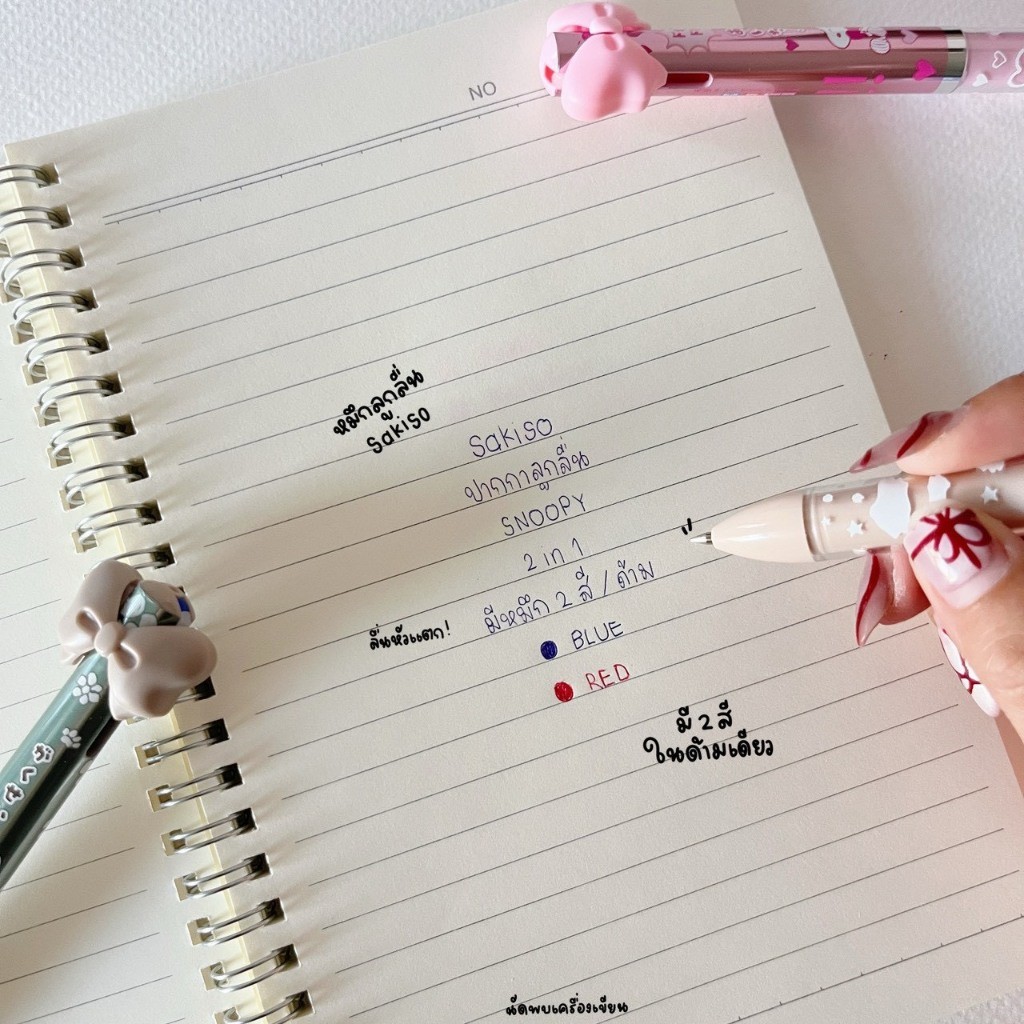 NO
หมึกลูกลื่น
Sakiso
Sakiso
ปากกาลูกลื่น
SNOOPY
2 in 1
มีหมึก 2 สี / ด้าม
ลื่นหัวแตก!
BLUE
RED
มี 2 สี
ในด้ามเดียว
นัดพบเครื่องเขียน